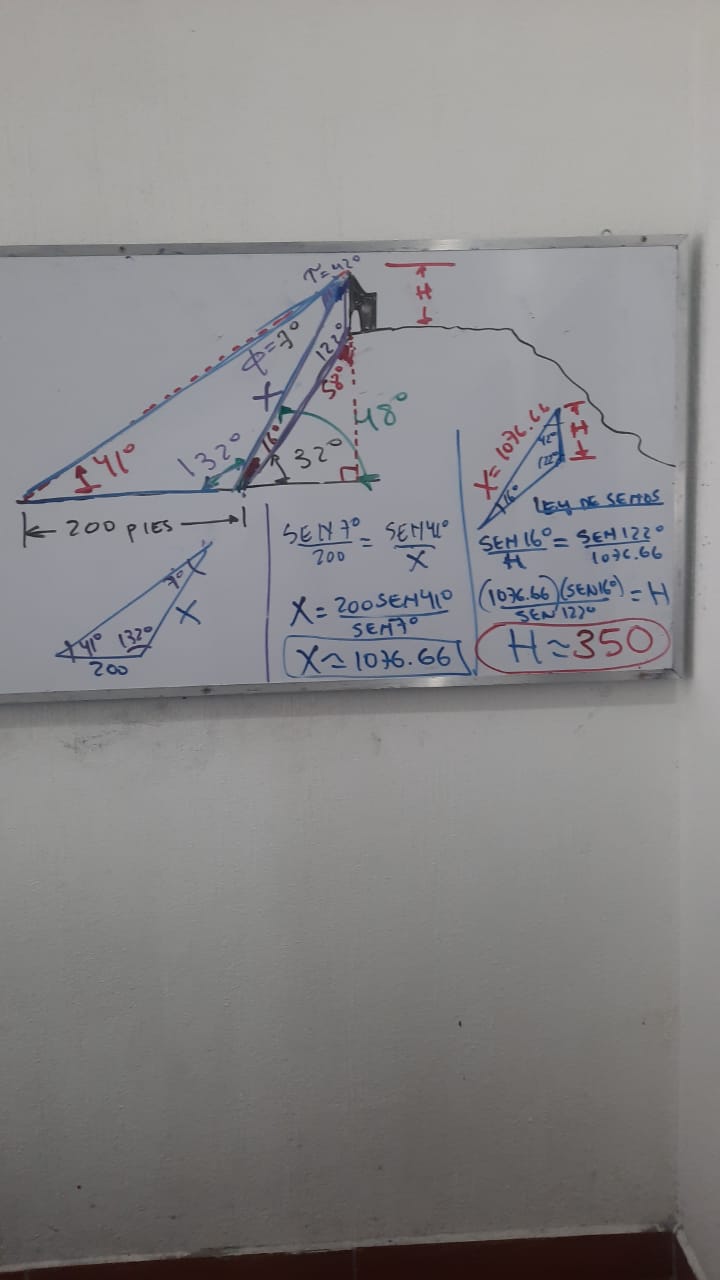 τ=42°
H
φ=7°
122°
58°
X
48°
41°
132°
16°
32°
200 PIES
7°
X
41°
132°
200
SEN7°/200 = SEN41°/X
X = 200SEN41°/SEN7°
X≈1076.66
X=1076.66
H
42°
122°
16°
LEY DE SENOS
SEN16°/H = SEN122°/1076.66
(1076.66)(SEN16°)/SEN122° = H
H≈350